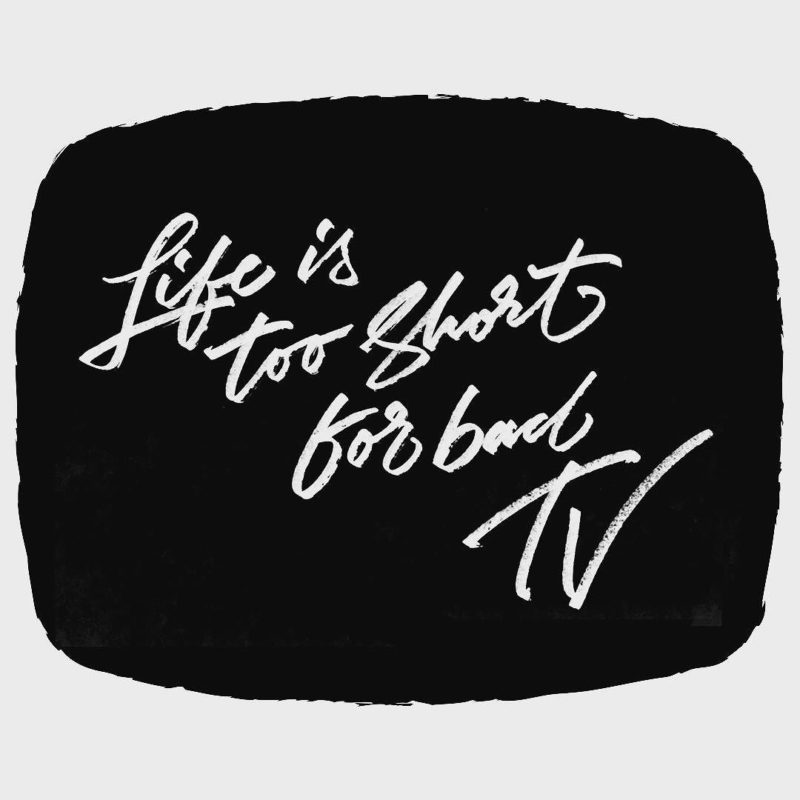 Life is
too short
for bad
TV